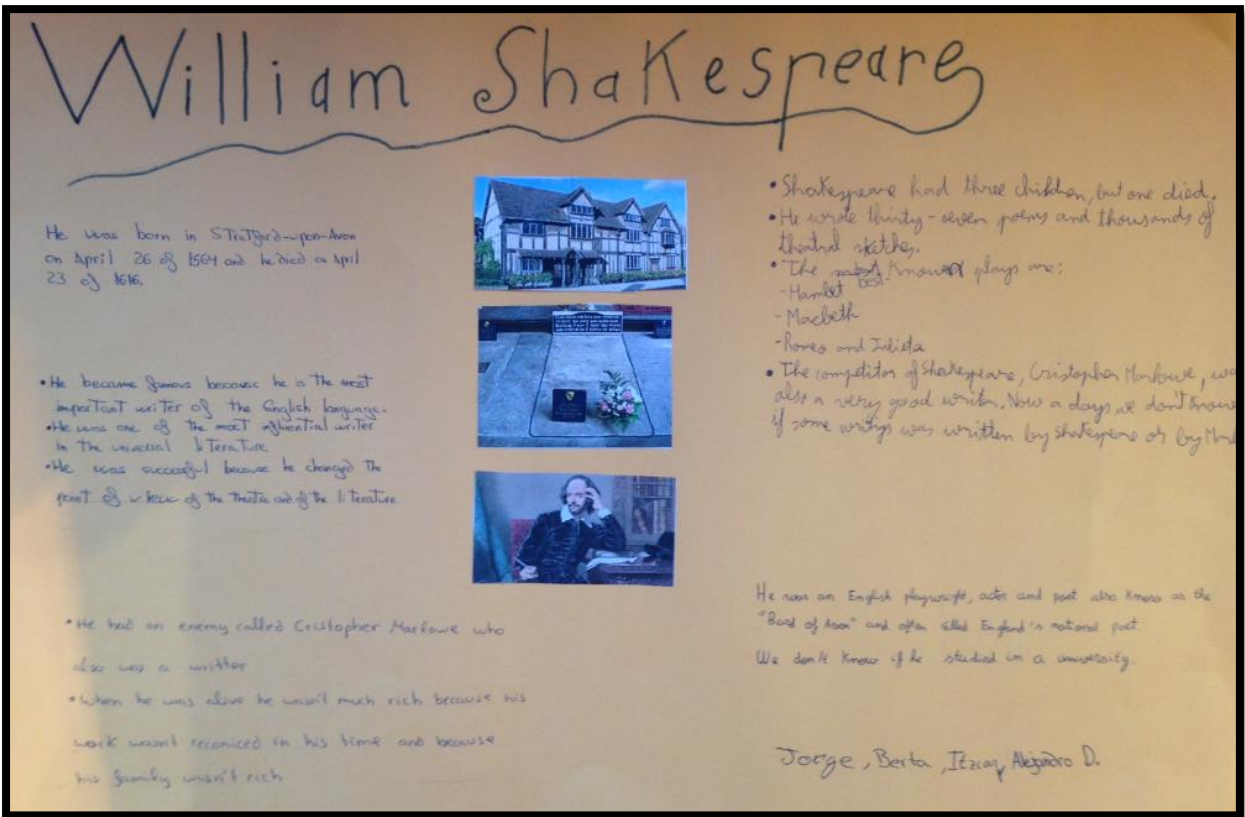 William Shakespeare
He was born in Stratford-upon-Avon
on April 26 of 1564 and he died on April
23 of 1616.
• He became famous because he is the most
important writer of the English language.
• He was one of the most influential writer
in the universal literature
• He was successful because he changed the
point of view of the theatre and of the literature
• He had an enemy called Cristopher Marlowe who
also was a writter
• When he was alive he wasn't much rich because his
work wasn't reconiced in his time and because
his family wasn't rich
• Shakespeare had three children, but one died.
• He wrote thirty-seven poems and thousands of
theatral sketches.
• The best known plays are:
- Hamlet
- Macbeth
- Romeo and Julieta
• The competitor of Shakespeare, Cristopher Marlowe, was
also a very good writer. Now a days we don't know
if some writings was written by Shakespeare or by Marl
He was an English playwright, actor and poet also know as the
"Bard of Avon" and often called England's national poet.
We don't know if he studied in a university.
Jorge, Berta, Itziar, Alejandro D.